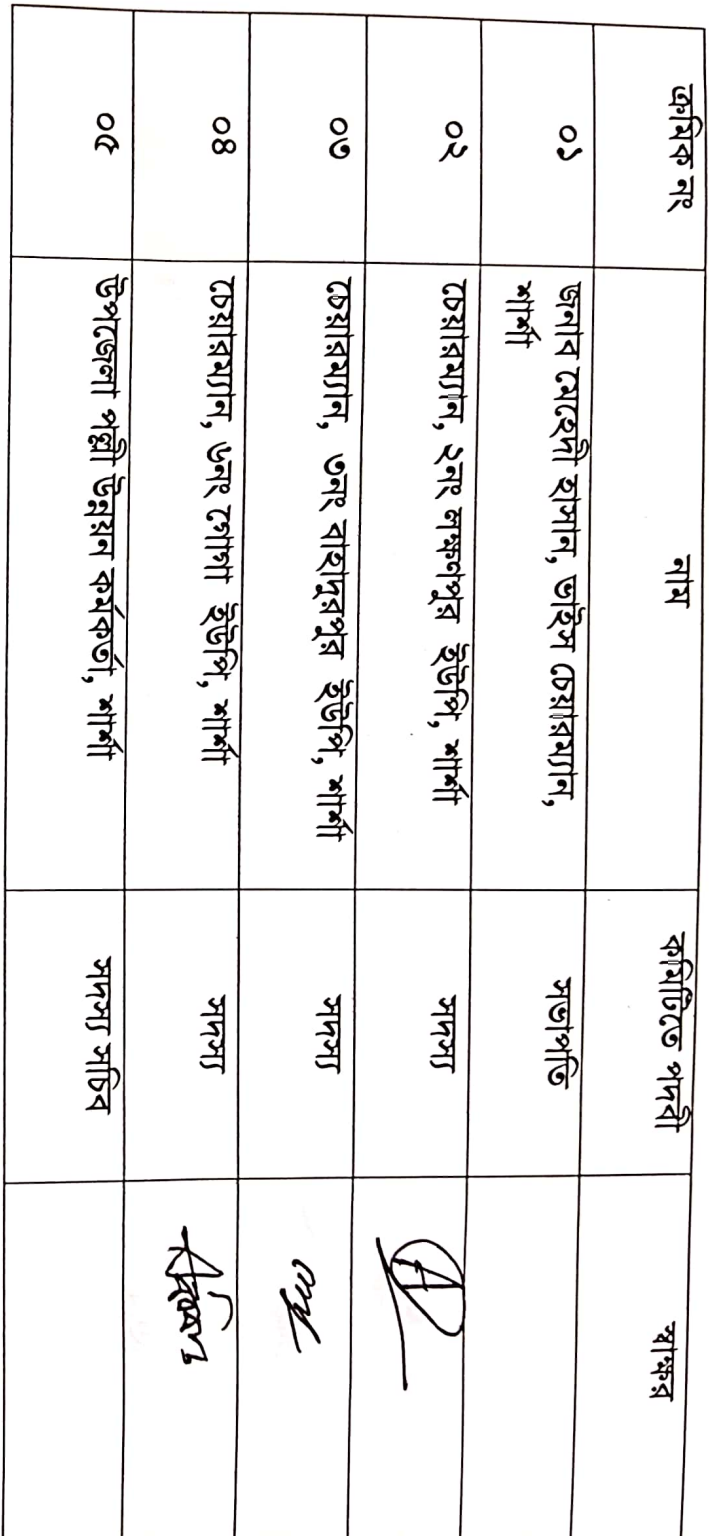 ক্রমিক নং নাম কমিটিতে পদবী স্বাক্ষর
০১ জনাব মেহেদী হাসান, ভাইস চেয়ারম্যান, শার্শা সভাপতি
০২ চেয়ারম্যান, ২নং লক্ষণপুর ইউপি, শার্শা সদস্য
০৩ চেয়ারম্যান, ৩নং বাহাদুরপুর ইউপি, শার্শা সদস্য
০৪ চেয়ারম্যান, ৬নং গোগা ইউপি, শার্শা সদস্য
০৫ উপজেলা পল্লী উন্নয়ন কর্মকর্তা, শার্শা সদস্য সচিব